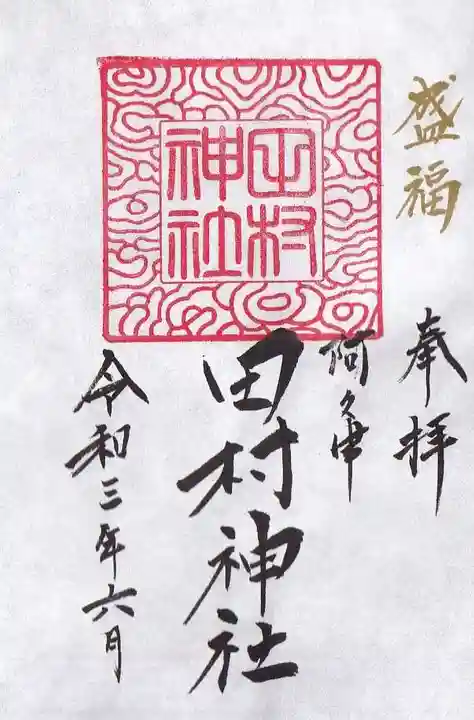 盛福
奉拝
阿久津
田村
神社
田村神社
令和三年六月